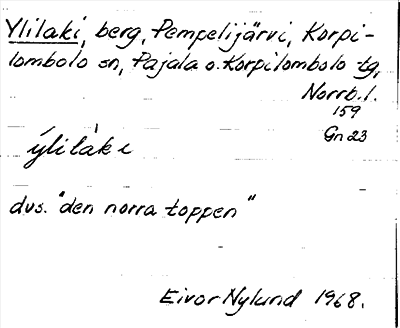 Ylilaki, berg, Pempelijärvi, Korpi-
lombolo sn, Pajala o. Korpilombolo tg,
Norrb. l.
159
Gn 23
ýlilàkι
dvs. "den norra toppen"
Eivor Nylund 1968.